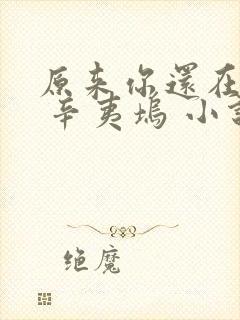 原来你還在
辛夷塢 小
绝魔